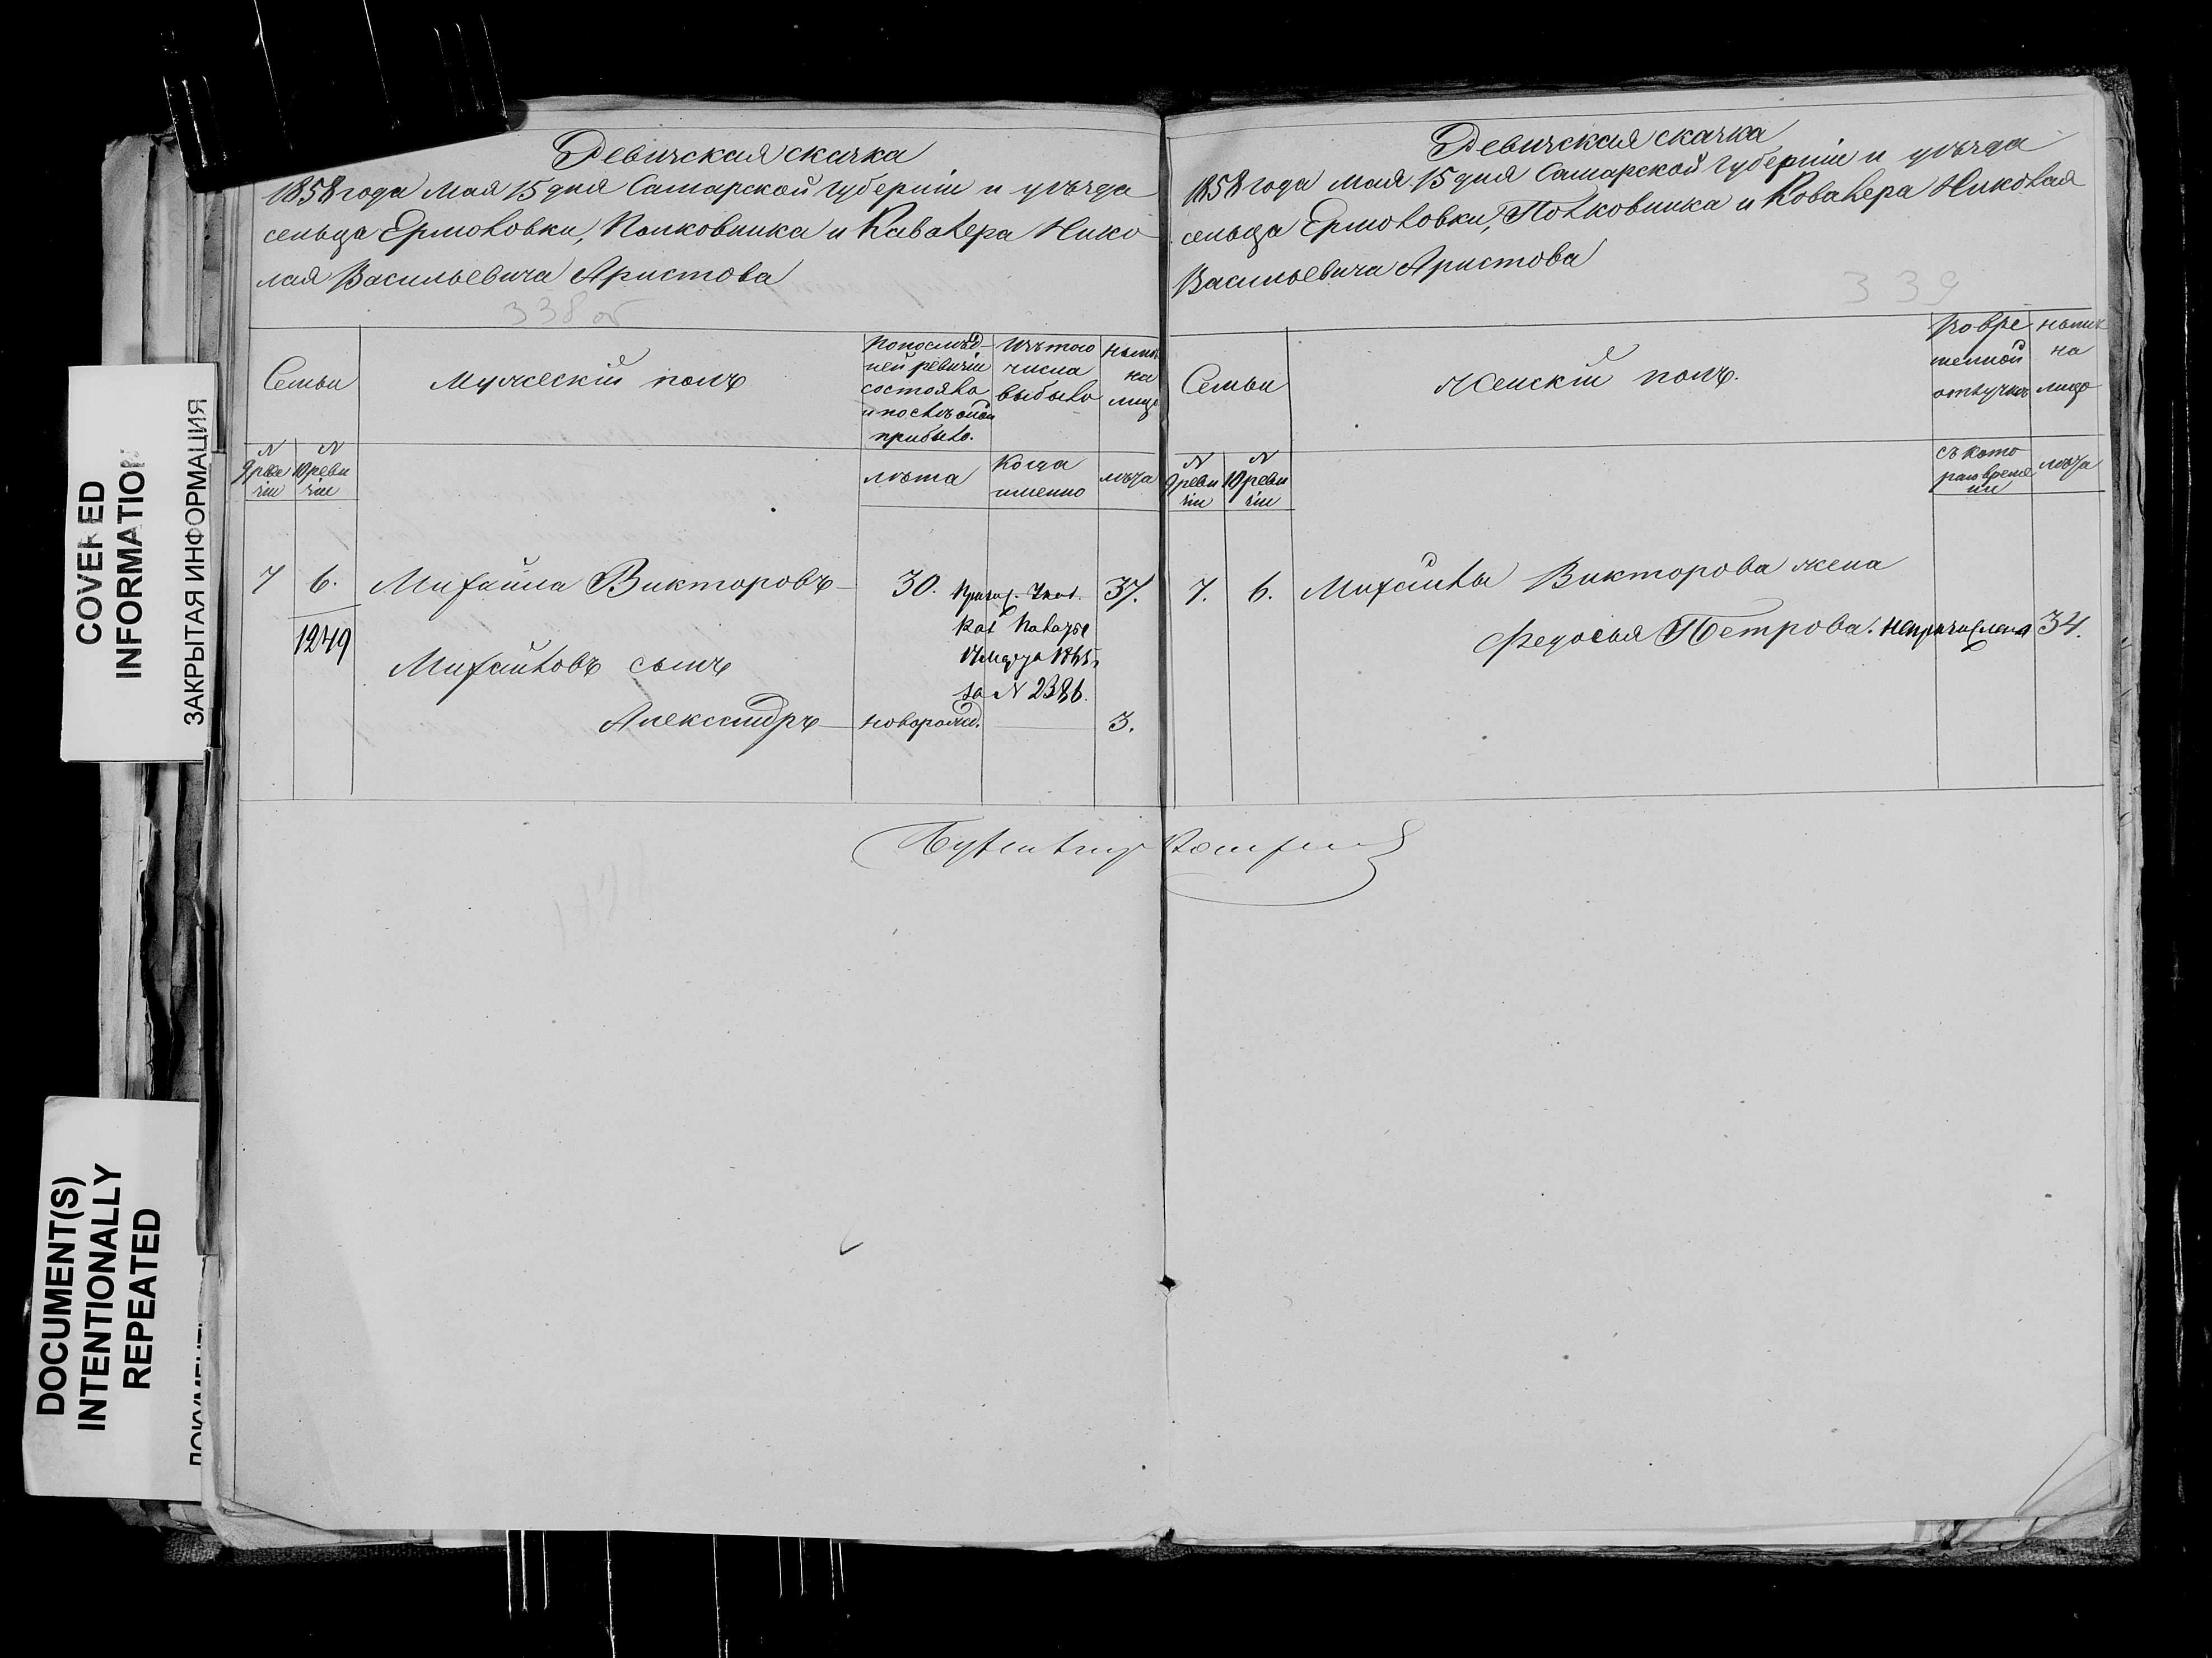 COVERED
INFORMATION
ЗАКРЫТАЯ ИНФОРМАЦИЯ
DOCUMENT(S)
INTENTIONALLY
REPEATED
Ревизская сказка
1858 года Мая 15 дня Самарской губернiи и уѣзда
сельца Ермоловки, Полковника и Кавалера Нико
лая Васильевича Аристова
338 об
Семьи
Мужескiй полъ
Попослѣд-
ней ревизiи
состояло
и послѣ оной
прибыло.
Изъ того
числа
выбыло
нынѣ
на
лицо
N
9 реви
зiи
N
10 реви
зiи
лѣта
Когда
именно
лѣта
7 6. Михайла Викторовъ 30. 37.
1249
17 Марта 1865 г.
за N 2386.
Михайловъ сынъ
Александръ новорожд. 3.
Ревизская сказка
1858 года Мая 15 дня Самарской губернiи и уѣзда
сельца Ермоловки, Полковника и Ковалера Николая
Васильевича Аристова
339
Семьи
Женскiй полъ.
Во вре
менной
отлучкѣ
нынѣ
на
лицо
N
9 реви
зiи
N
10 реви
зiи
съ кото
раго време
ни
лѣта
7. 6. Михайлы Викторова жена
Федосья Петрова. Непричислена 34.